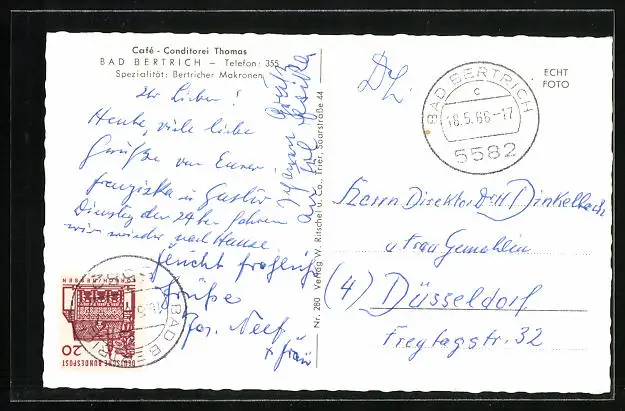 Café - Conditorei Thomas
BAD BERTRICH – Telefon: 355
Spezialität: Bertricher Makronen
Ihr Lieben!
Heute, viele liebe
Grüße von Eurer
Franziska u Gustav
Dienstag den 24ten fahren
wir wieder nach Hause.
Grüße
Jos. Neef
+ Frau
Nr. 280 Verlag W. Ritschel u. Co., Trier, Saarstraße 44
BAD BERTRICH
c
18.5.66-17
5582
ECHT
FOTO
Herrn Direktor Dr H Dinkelbach
u Frau Gemahlin
(4) Düsseldorf
Freytagstr. 32
DEUTSCHE BUNDESPOST
20